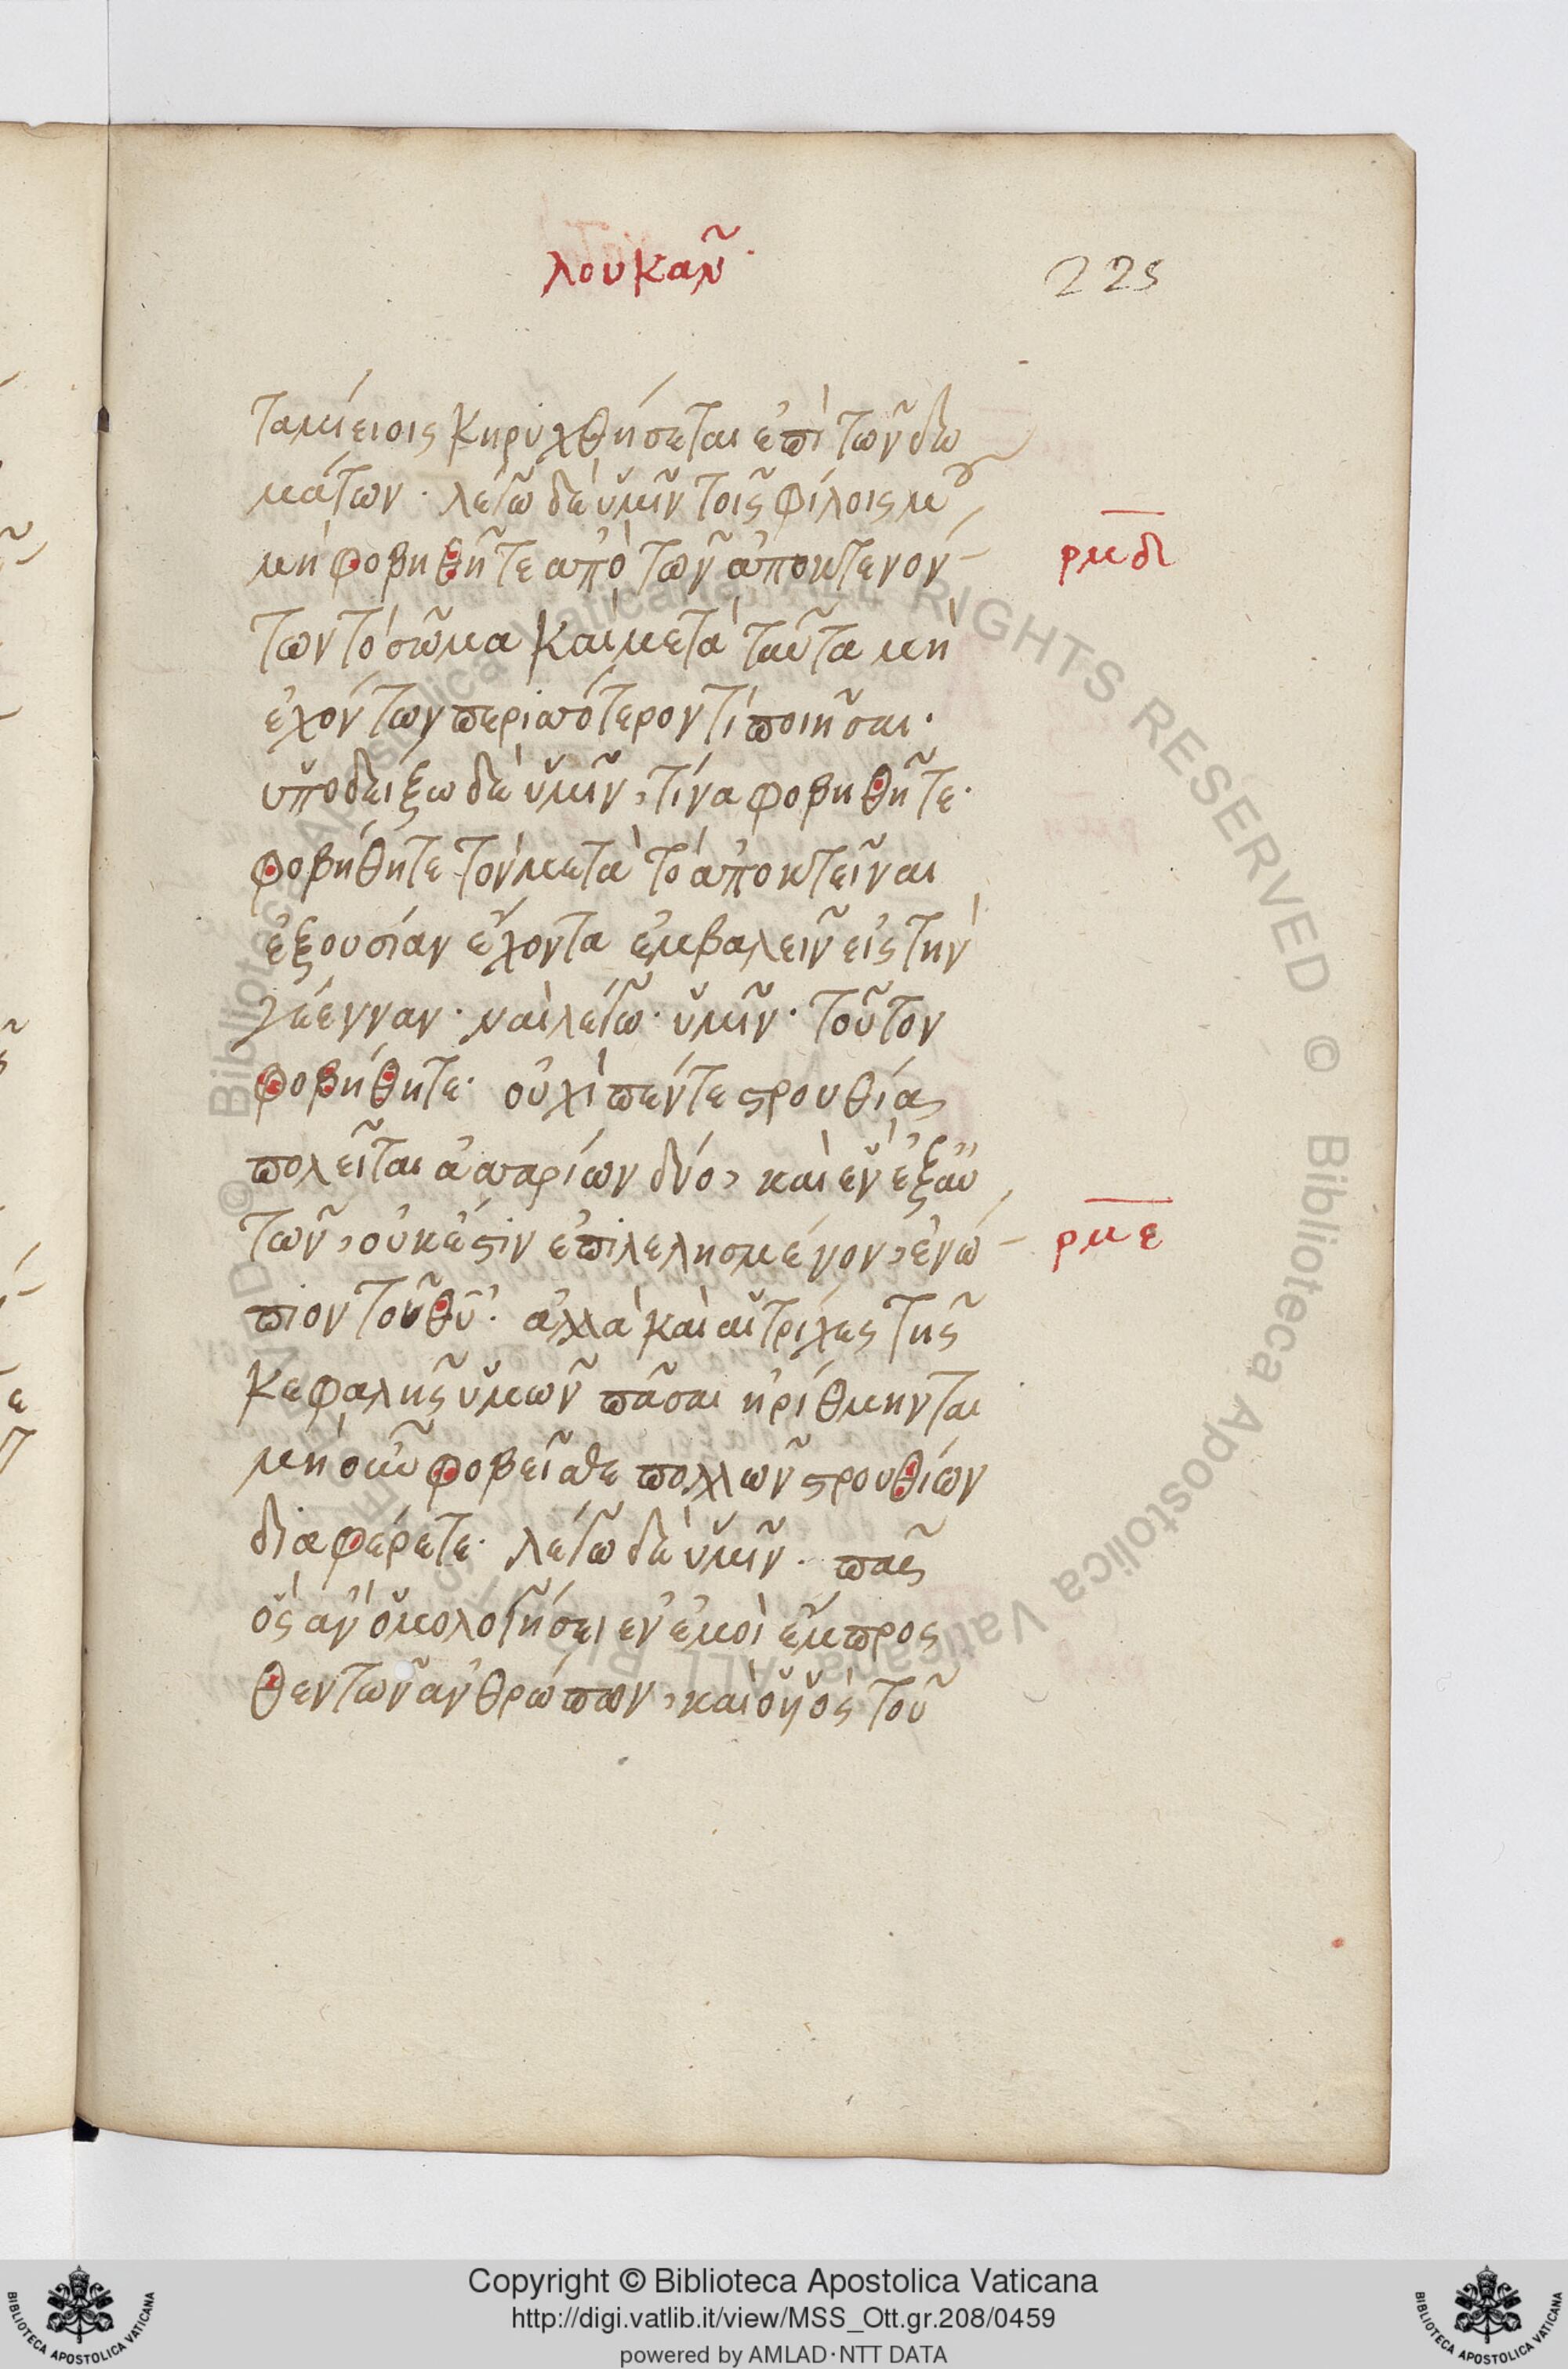 λουκαν῀
225
ταμίειοις κηρυχθήσεται ἐπὶ τῶν δω
μάτων· λέγω δὲ ὑμῖν τοῖς φίλοις μου,
μὴ φοβηθῆτε ἀπὸ τῶν ἀποκτενόν
ρμδ
των τὸ σῶμα καὶ μετὰ ταῦτα μὴ
ἐχόντων περισσότερον τί ποιῆσαι·
ὑποδείξω δὲ ὑμῖν, τίνα φοβηθῆτε·
φοβήθητε τὸν μετὰ τὸ ἀποκτεῖναι
ἐξουσίαν ἔχοντα ἐμβαλεῖν εἰς τὴν
γέενναν· ναὶ λέγω· ὑμῖν· τοῦτον
φοβήθητε· οὐχὶ πέντε στρουθία
πολεῖται ἀσσαρίων δύο, καὶ ἓν ἐξ αὐ
τῶν, οὐκ ἔστιν ἐπιλελησμένον, ἐνώ
ρμε
πιον τοῦ θυ· ἀλλὰ καὶ αἱ τρίχες τῆς
κεφαλῆς ὑμῶν πᾶσαι ἠρίθμηνται
μὴ οὖν φοβεῖσθε πολλῶν στρουθίων
διαφέρετε· λέγω δὲ ὑμῖν· πᾶς
ὃς ἂν ὁμολογήσει ἐν ἐμοὶ ἔμπρος
θεν τῶν ἀνθρώπων, καὶ ὁ υἱὸς τοῦ
© Biblioteca Apostolica Vaticana ALL RIGHTS RESERVED © Biblioteca Apostolica Vaticana ALL RIGHTS RESERVED
Copyright © Biblioteca Apostolica Vaticana
http://digi.vatlib.it/view/MSS_Ott.gr.208/0459
powered by AMLAD·NTT DATA
BIBLIOTECA APOSTOLICA VATICANA
BIBLIOTECA APOSTOLICA VATICANA